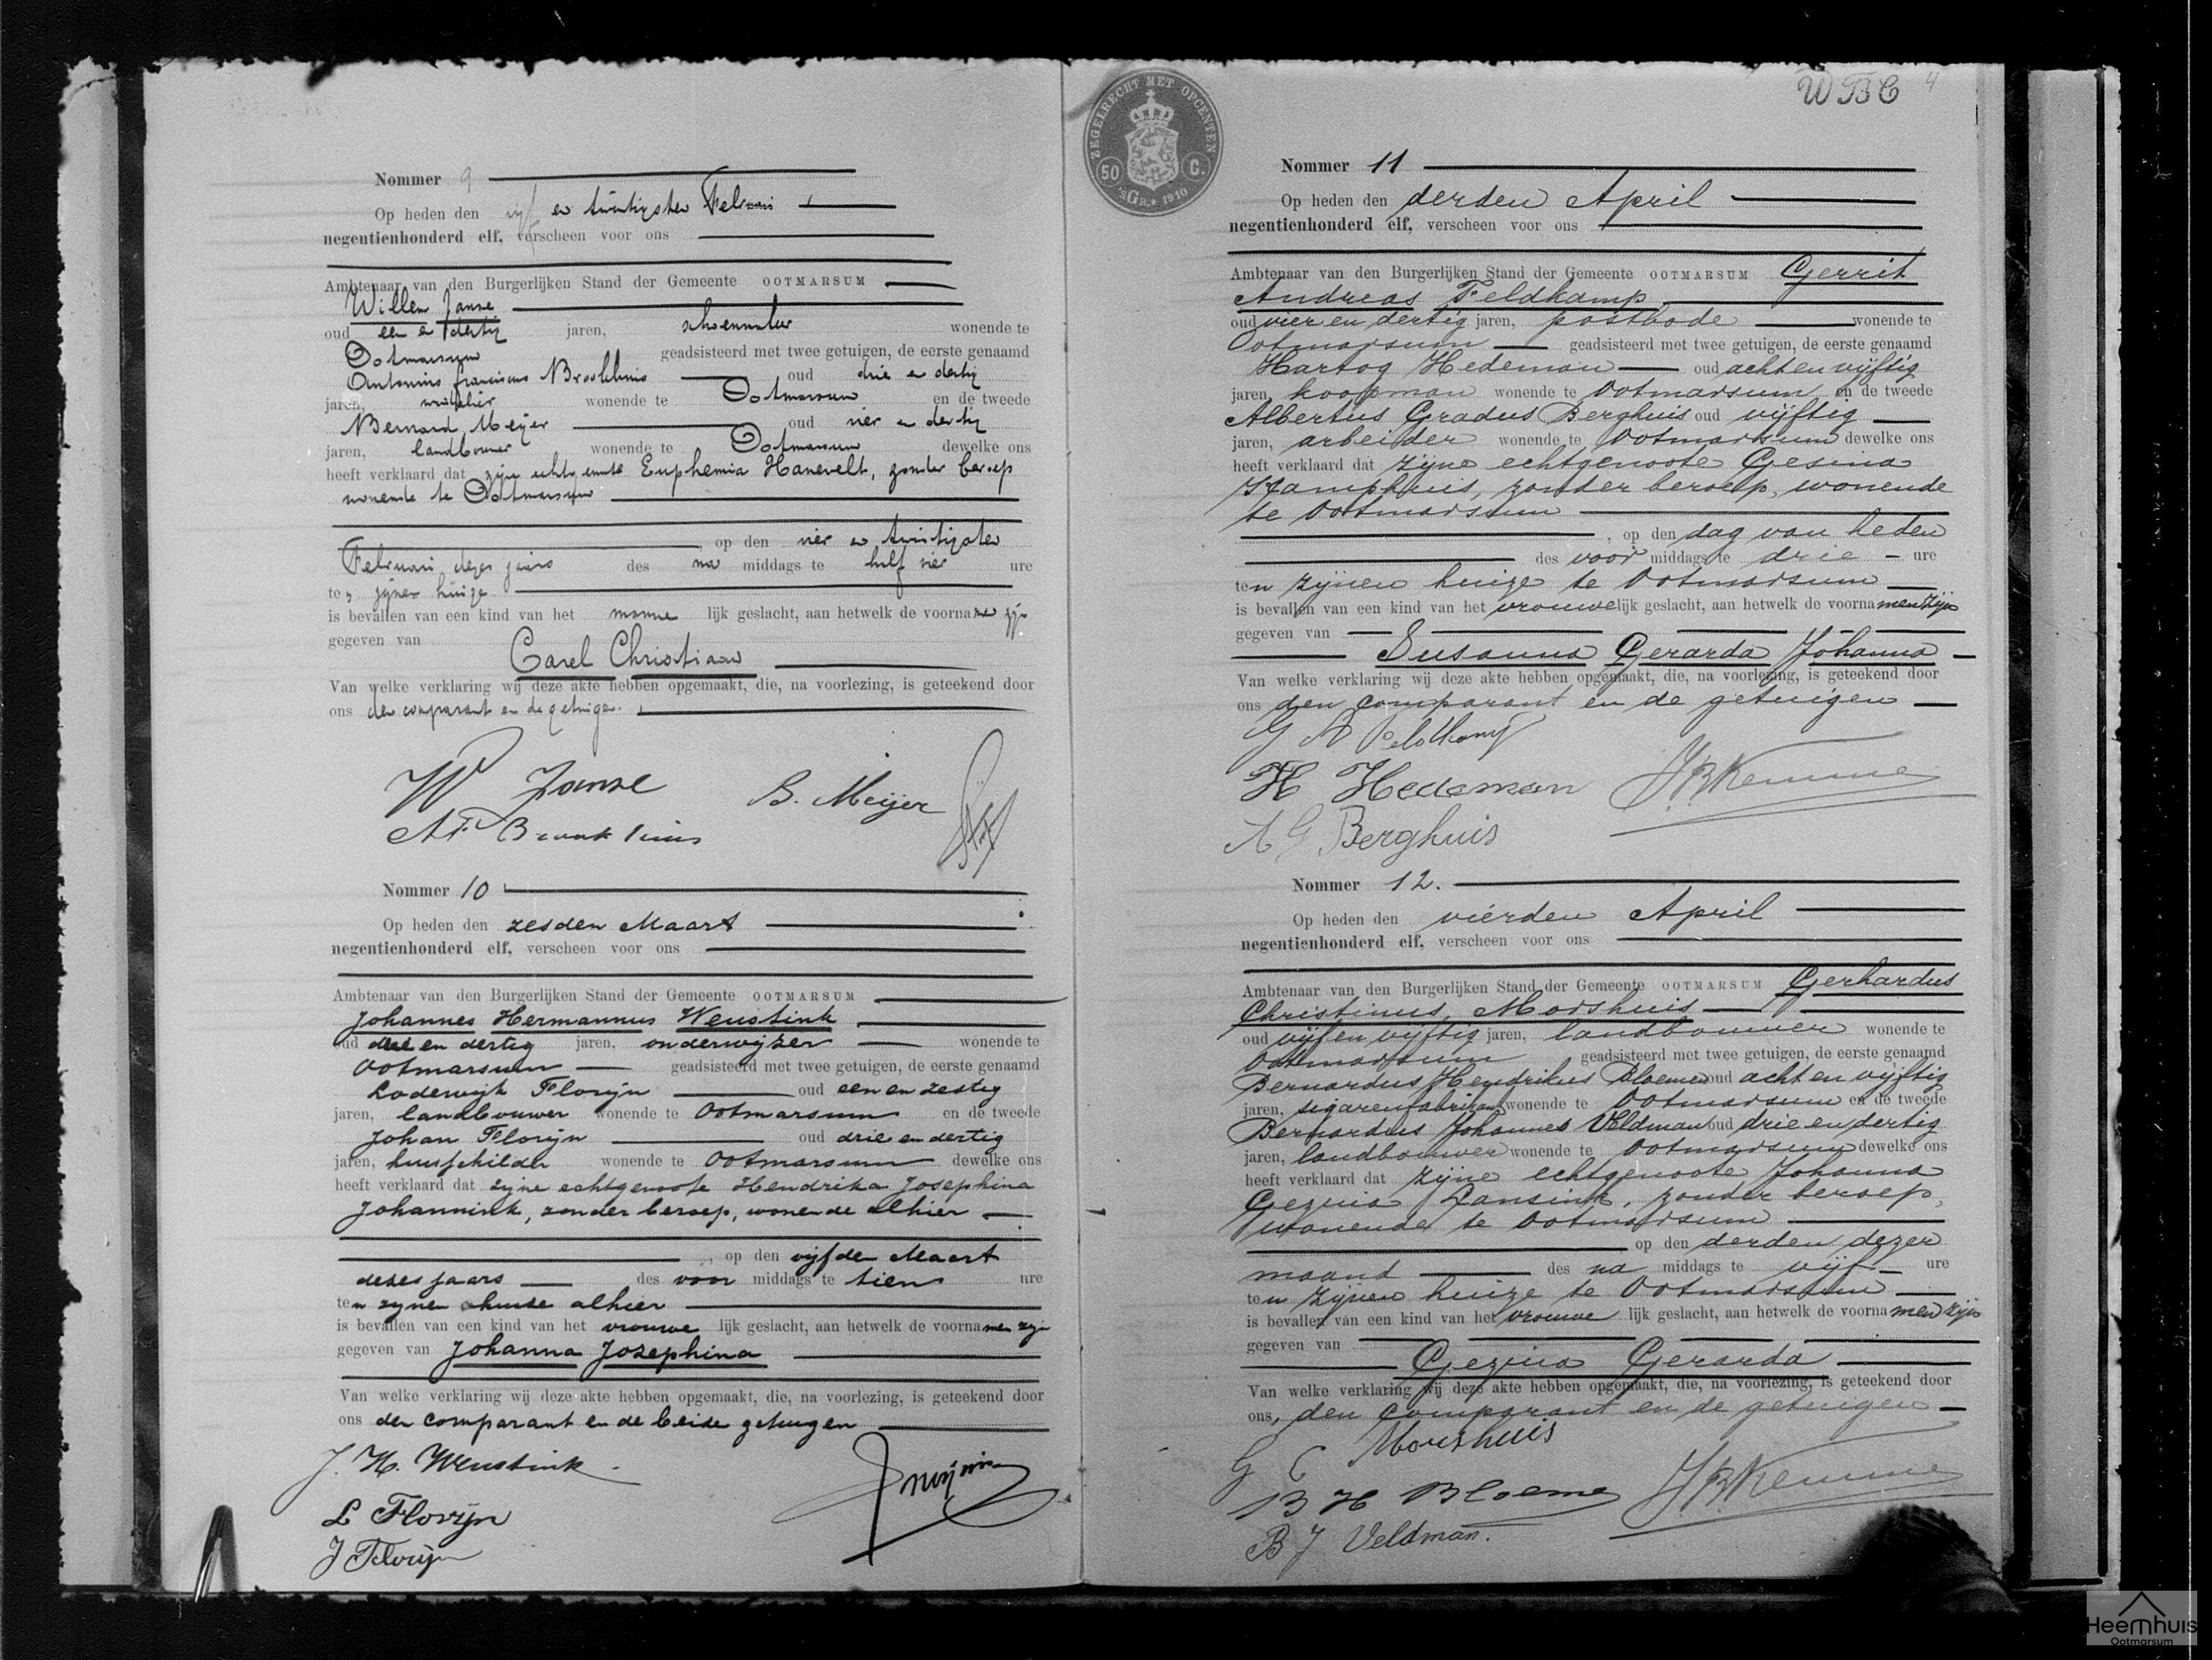 Nommer 9
Op heden den vijf en twintigsten Februari
negentienhonderd elf, verscheen voor ons
Ambtenaar van den Burgerlijken Stand der Gemeente OOTMARSUM
Willem Janse
oud een en dertig jaren, wonende te
Ootmarsum geadsisteerd met twee getuigen, de eerste genaamd
Antonius franciscus Brookhuis oud drie en dertig
jaren, wonende te Ootmarsum en de tweede
Bernard Meijer oud vier en dertig
jaren, landbouwer wonende te Ootmarsum dewelke ons
heeft verklaard dat zijne echtgenoote Euphemia Hanevelt, zonder beroep
wonende te Ootmarsum
op den vier en twintigsten
Februari dezes jaars des na middags te half vier ure
ten zijnen huize
is bevallen van een kind van het manne lijk geslacht, aan hetwelk de voornamen zijn
gegeven van
Carel Christiaan
Van welke verklaring wij deze akte hebben opgemaakt, die, na voorlezing, is geteekend door
ons den comparant en de getuigen.
W Janse B. Meijer
AF Brookhuis
Nommer 10
Op heden den zesden Maart
negentienhonderd elf, verscheen voor ons
Ambtenaar van den Burgerlijken Stand der Gemeente OOTMARSUM
Johannes Hermannus Weustink
oud drie en dertig jaren, onderwijzer wonende te
Ootmarsum geadsisteerd met twee getuigen, de eerste genaamd
Lodewijk Florijn oud een en zestig
jaren, landbouwer wonende te Ootmarsum en de tweede
Johan Florijn oud drie en dertig
jaren, huisschilder wonende te Ootmarsum dewelke ons
heeft verklaard dat zijne echtgenoote Hendrika Josephina
Johannink, zonder beroep, wonende alhier
, op den vijfden Maart
dezes jaars des voor middags te tien ure
ten zijnen huize alhier
is bevallen van een kind van het vrouwe lijk geslacht, aan hetwelk de voornamen zijn
gegeven van Johanna Josephina
Van welke verklaring wij deze akte hebben opgemaakt, die, na voorlezing, is geteekend door
ons den comparant en de beide getuigen
J. H. Weustink
L Florijn
J Florijn
ZEGELRECHT MET OPCENTEN
50 C.
'sGR. 1910
WBC 4
Nommer 11
Op heden den derden April
negentienhonderd elf, verscheen voor ons
Ambtenaar van den Burgerlijken Stand der Gemeente OOTMARSUM Gerrit
Andreas Feldkamp,
oud vier en dertig jaren, postbode wonende te
Ootmarsum geadsisteerd met twee getuigen, de eerste genaamd
Hartog Hedeman oud acht en vijftig
jaren, koopman wonende te Ootmarsum en de tweede
Albertus Gradus Berghuis oud vijftig
jaren, arbeider wonende te Ootmarsum dewelke ons
heeft verklaard dat zijne echtgenoote Gesina
Kamphuis, zonder beroep, wonende
te Ootmarsum
, op den dag van heden
des voor middags te drie ure
ten zijnen huize te Ootmarsum
is bevallen van een kind van het vrouwelijk geslacht, aan hetwelk de voornamen zijn
gegeven van
Susanna Gerarda Johanna
Van welke verklaring wij deze akte hebben opgemaakt, die, na voorlezing, is geteekend door
ons den comparant en de getuigen
G A Feldkamp
H Hedeman JBKemme
A G Berghuis
Nommer 12.
Op heden den vierden April
negentienhonderd elf, verscheen voor ons
Ambtenaar van den Burgerlijken Stand der Gemeente OOTMARSUM Gerhardus
Christinus Morshuis
oud vijf en vijftig jaren, landbouwer wonende te
Ootmarsum geadsisteerd met twee getuigen, de eerste genaamd
Bernardus Hendrikus Bloemen oud acht en vijftig
jaren, sigarenfabrikant wonende te Ootmarsum en de tweede
Bernardus Johannes Veldman oud drie en dertig
jaren, landbouwer wonende te Ootmarsum dewelke ons
heeft verklaard dat zijne echtgenoote Johanna
Gezina Lansink, zonder beroep,
wonende te Ootmarsum
op den derden dezer
maand des na middags te vijf ure
ten zijnen huize te Ootmarsum
is bevallen van een kind van het vrouwe lijk geslacht, aan hetwelk de voornamen zijn
gegeven van
Gezina Gerarda
Van welke verklaring wij deze akte hebben opgemaakt, die, na voorlezing, is geteekend door
ons, den comparant en de getuigen
G C Morshuis
B H Bloeme JBKemme
B J Veldman.
Heemhuis
Ootmarsum